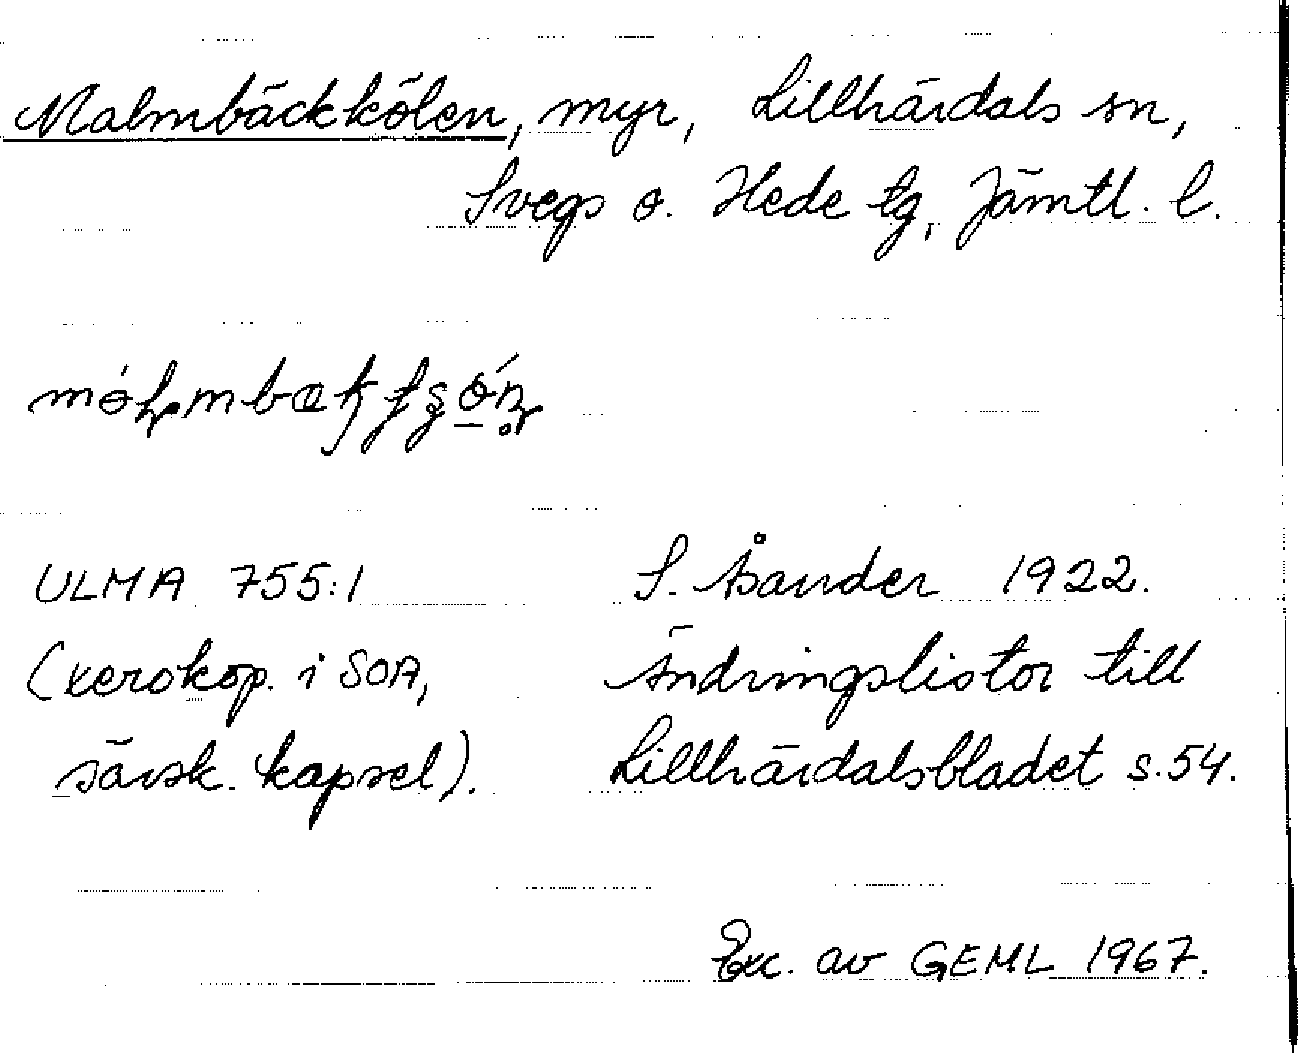 Malmbäckkölen, myr, Lillhärdals sn,
Svegs o. Hede tg, Jämtl. l.
ULMA 755:1
S. Åsander 1922.
(xerokop. i SOA,
Ändringslistor till
särsk. kapsel).
Lillhärdalsbladet s.54.
Exc. av GEML 1967.